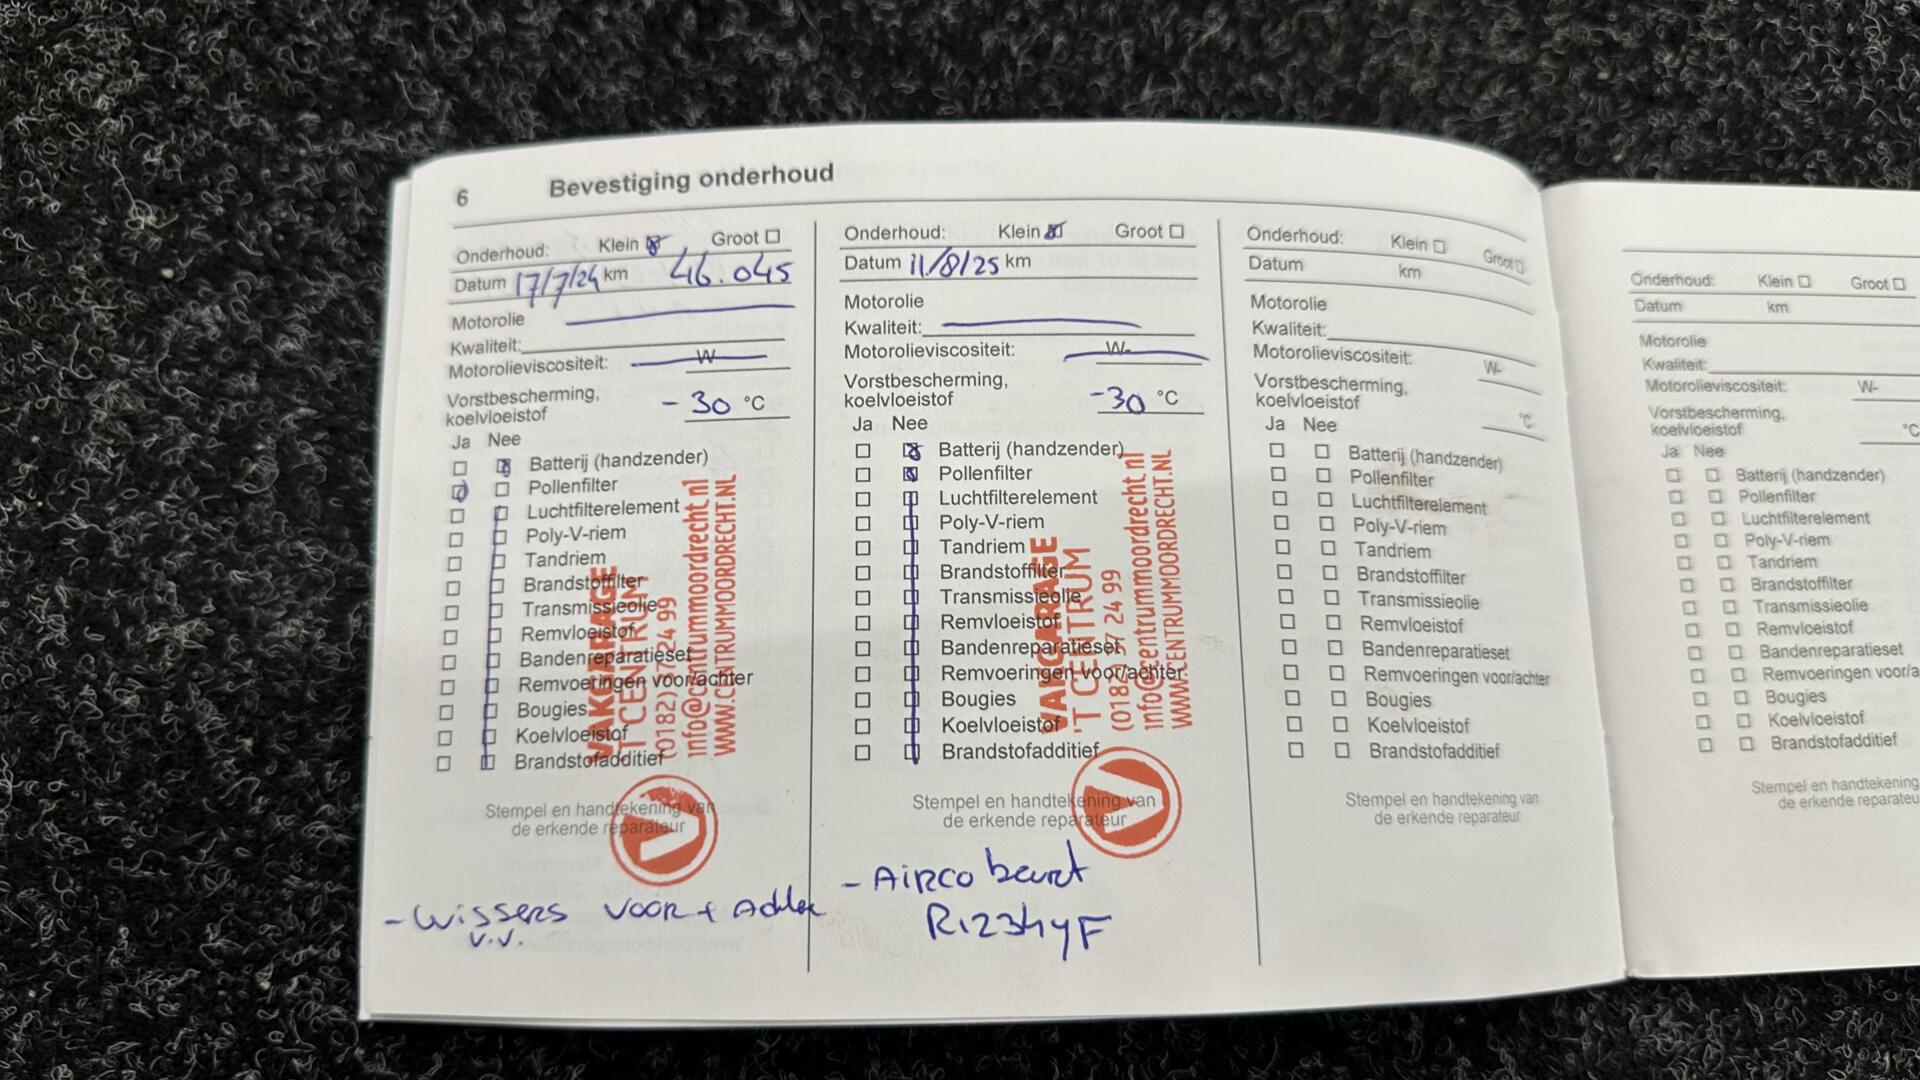 6 Bevestiging onderhoud
Onderhoud: Klein Groot
Datum 17/7/24 km 46.045
Motorolie
Kwaliteit:
Motorolieviscositeit: W
Vorstbescherming,
koelvloeistof -30 °C
Ja Nee
Batterij (handzender)
Pollenfilter
Luchtfilterelement
Poly-V-riem
Tandriem
Brandstoffilter
Transmissieolie
Remvloeistof
Bandenreparatieset
Remvoeringen voor/achter
Bougies
Koelvloeistof
Brandstofadditief
Stempel en handtekening van
de erkende reparateur
VAKGARAGE
'T CENTRUM
(0182) 37 24 99
info@centrummoordrecht.nl
WWW.CENTRUMMOORDRECHT.NL
- Wissers voor + Achter
v.v.
Onderhoud: Klein Groot
Datum 11/8/25 km
Motorolie
Kwaliteit:
Motorolieviscositeit: W-
Vorstbescherming,
koelvloeistof -30 °C
Ja Nee
Batterij (handzender)
Pollenfilter
Luchtfilterelement
Poly-V-riem
Tandriem
Brandstoffilter
Transmissieolie
Remvloeistof
Bandenreparatieset
Remvoeringen voor/achter
Bougies
Koelvloeistof
Brandstofadditief
Stempel en handtekening van
de erkende reparateur
VAKGARAGE
'T CENTRUM
(0182) 37 24 99
info@centrummoordrecht.nl
WWW.CENTRUMMOORDRECHT.NL
- Airco beurt
R1234yF
Onderhoud: Klein Groot
Datum km
Motorolie
Kwaliteit:
Motorolieviscositeit: W-
Vorstbescherming,
koelvloeistof °C
Ja Nee
Batterij (handzender)
Pollenfilter
Luchtfilterelement
Poly-V-riem
Tandriem
Brandstoffilter
Transmissieolie
Remvloeistof
Bandenreparatieset
Remvoeringen voor/achter
Bougies
Koelvloeistof
Brandstofadditief
Stempel en handtekening van
de erkende reparateur
Onderhoud: Klein Groot
Datum km
Motorolie
Kwaliteit:
Motorolieviscositeit: W-
Vorstbescherming,
koelvloeistof °C
Ja Nee
Batterij (handzender)
Pollenfilter
Luchtfilterelement
Poly-V-riem
Tandriem
Brandstoffilter
Transmissieolie
Remvloeistof
Bandenreparatieset
Remvoeringen voor/a
Bougies
Koelvloeistof
Brandstofadditief
Stempel en handtekening
de erkende reparateu